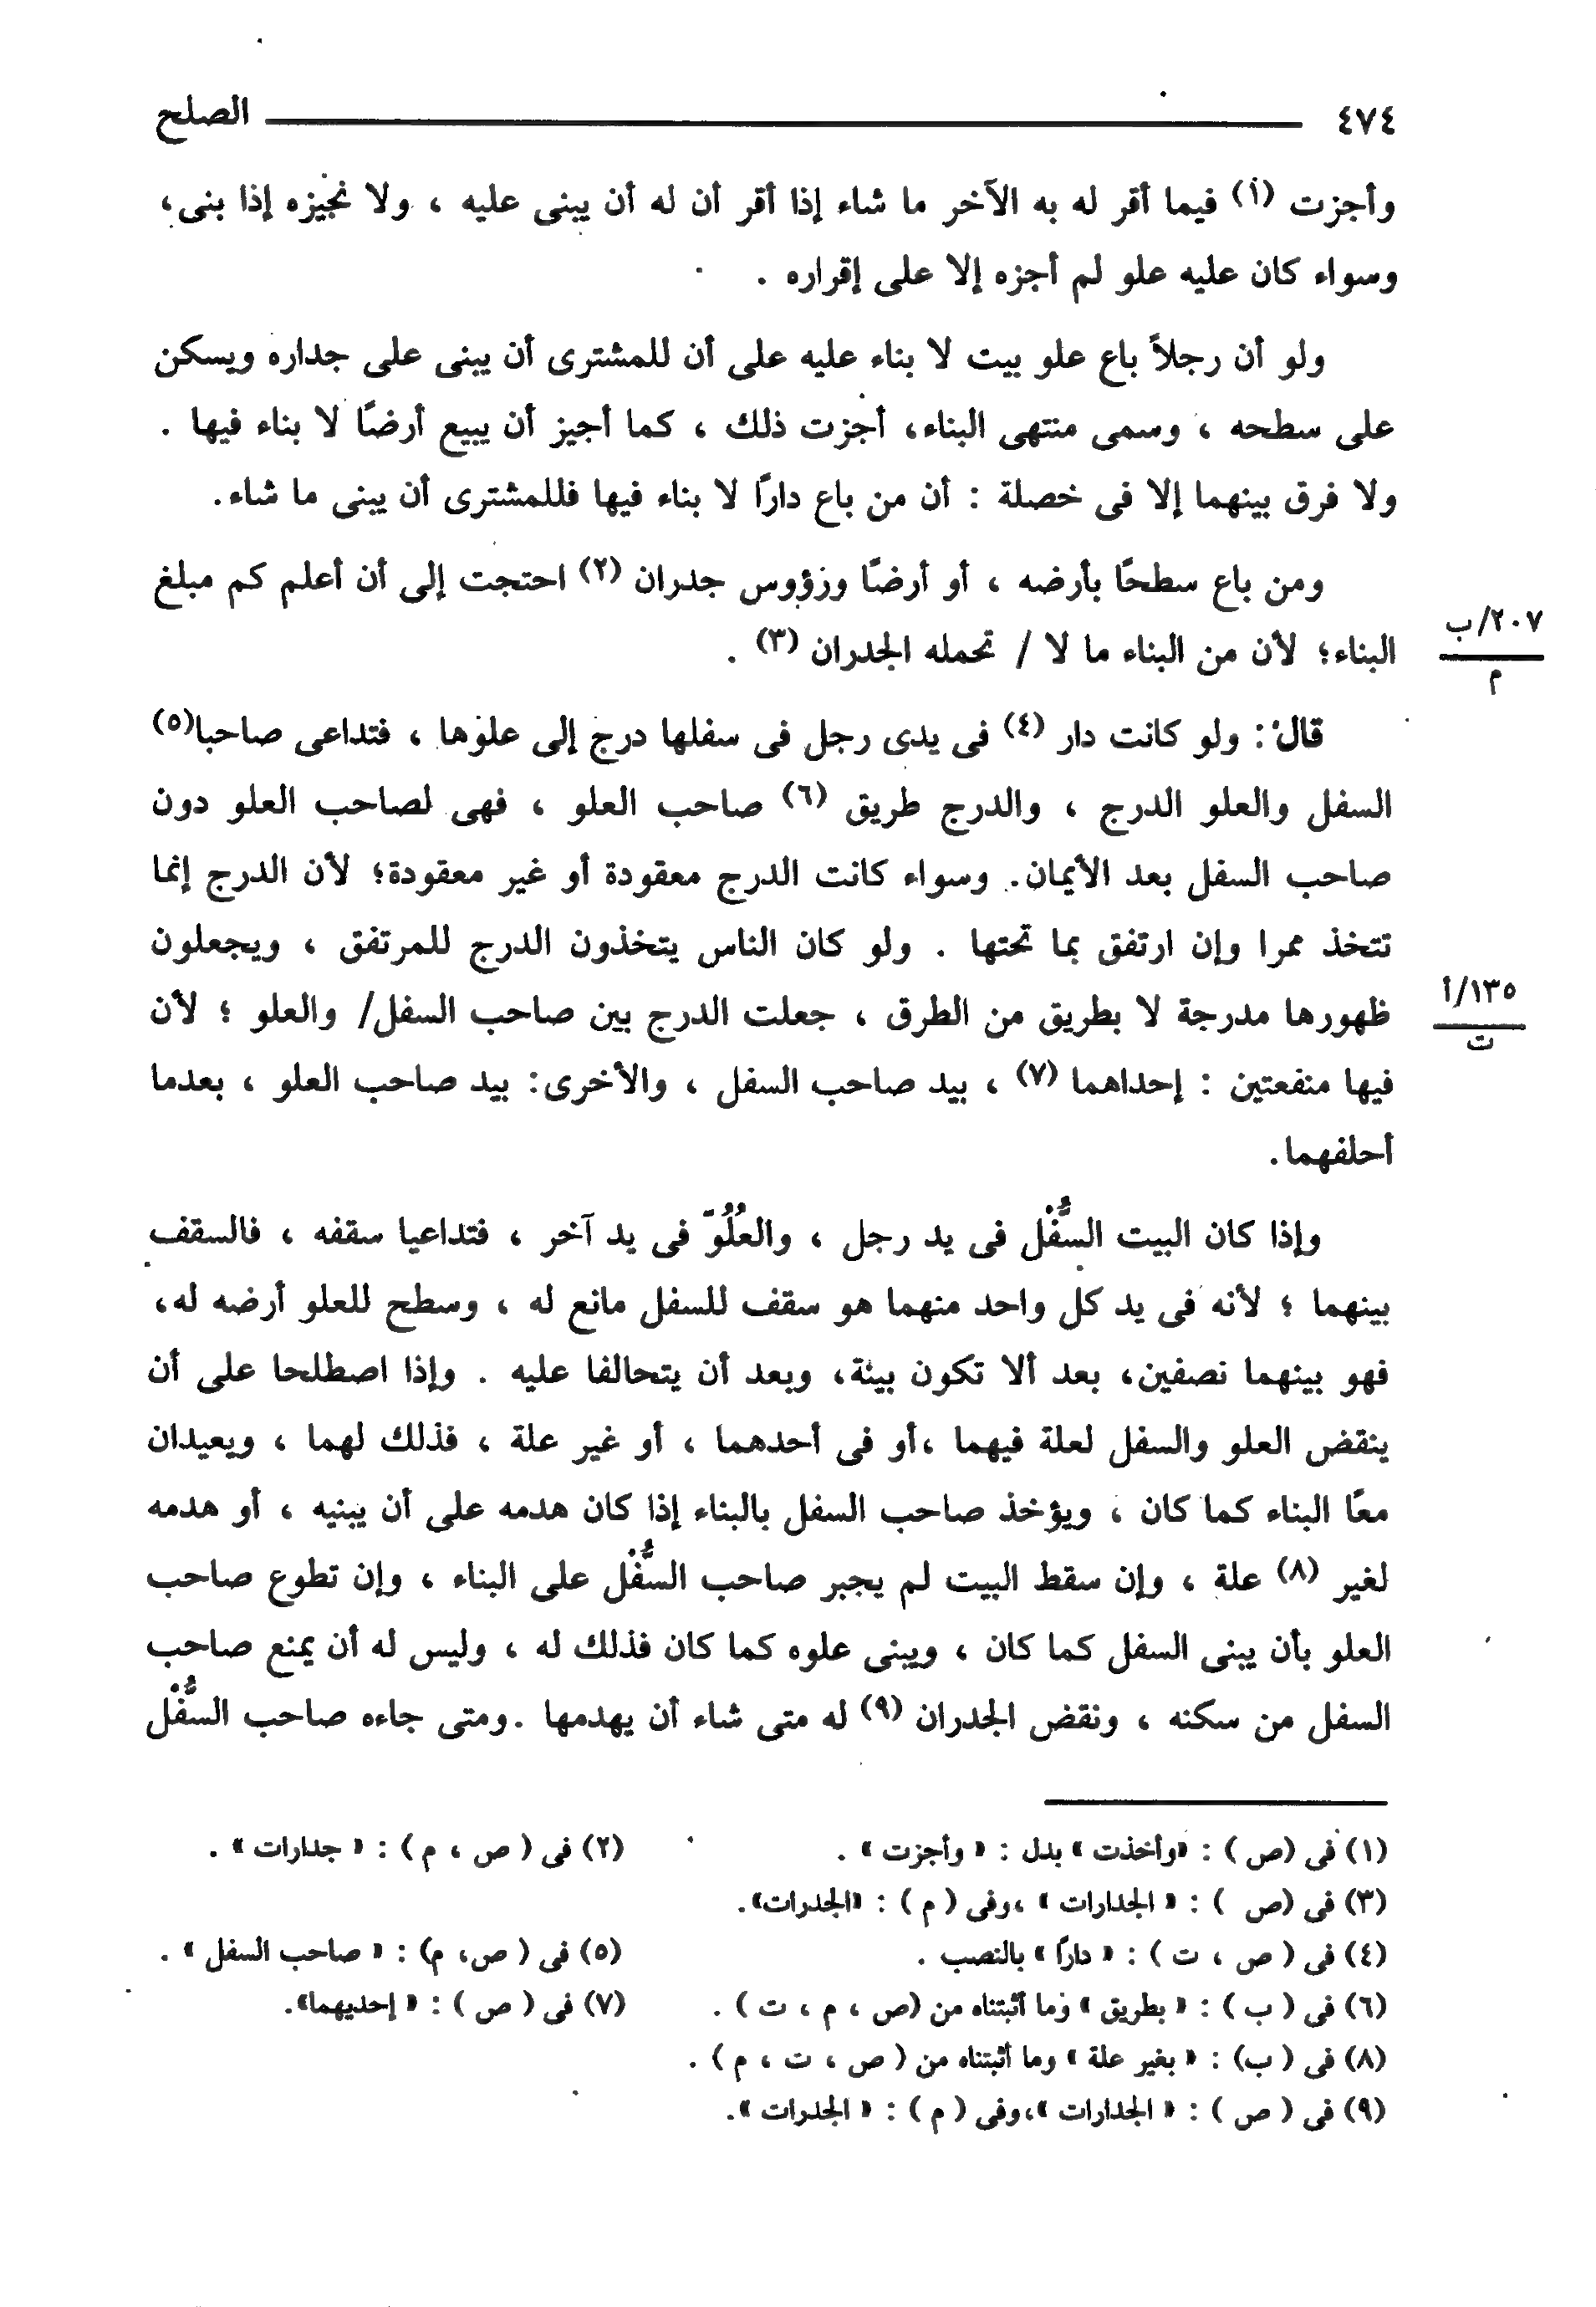 ٤٧٤ الصلح
وأجزت (١) فيما أقر له به الآخر ما شاء إذا أقر أن له أن يبنى عليه ، ولا نجيزه إذا بنى،
وسواء كان عليه علو لم أجزه إلا على إقراره .
ولو أن رجلاً باع علو بيت لا بناء عليه على أن للمشترى أن يبنى على جداره ويسكن
على سطحه ، وسمى منتهى البناء، أجزت ذلك ، كما أجيز أن يبيع أرضًا لا بناء فيها .
ولا فرق بينهما إلا فى خصلة : أن من باع دارًا لا بناء فيها فللمشترى أن يبنى ما شاء.
ومن باع سطحًا بأرضه ، أو أرضًا ورؤوس جدران (٢) احتجت إلى أن أعلم كم مبلغ
البناء؛ لأن من البناء ما لا / تحمله الجدران (٣) .
٢٠٧/ب
م
قال : ولو كانت دار (٤) فى يدى رجل فى سفلها درج إلى علوها ، فتداعى صاحبا(٥)
السفل والعلو الدرج ، والدرج طريق (٦) صاحب العلو ، فهى لصاحب العلو دون
صاحب السفل بعد الأيمان. وسواء كانت الدرج معقودة أو غير معقودة؛ لأن الدرج إنما
تتخذ ممرا وإن ارتفق بما تحتها . ولو كان الناس يتخذون الدرج للمرتفق ، ويجعلون
ظهورها مدرجة لا بطريق من الطرق ، جعلت الدرج بين صاحب السفل/ والعلو ؛ لأن
١٣٥/أ
ت
فيها منفعتين : إحداهما (٧) ، بيد صاحب السفل ، والأخرى: بيد صاحب العلو ، بعدما
أحلفهما.
وإذا كان البيت السُّفْل فى يد رجل ، والعُلُوّ فى يد آخر ، فتداعيا سقفه ، فالسقف
بينهما ؛ لأنه فى يد كل واحد منهما هو سقف للسفل مانع له ، وسطح للعلو أرضه له،
فهو بينهما نصفين، بعد ألا تكون بينة، وبعد أن يتحالفا عليه . وإذا اصطلحا على أن
ينقض العلو والسفل لعلة فيهما ،أو فى أحدهما ، أو غير علة ، فذلك لهما ، ويعيدان
معًا البناء كما كان ، ويؤخذ صاحب السفل بالبناء إذا كان هدمه على أن يبنيه ، أو هدمه
لغير (٨) علة ، وإن سقط البيت لم يجبر صاحب السُّفْل على البناء ، وإن تطوع صاحب
العلو بأن يبنى السفل كما كان ، ويبنى علوه كما كان فذلك له ، وليس له أن يمنع صاحب
السفل من سكنه ، ونقض الجدران (٩) له متى شاء أن يهدمها .ومتى جاءه صاحب السُّفْل
(١) فى (ص ) : «وأخذت » بدل : « وأجزت » . (٢) فى ( ص ، م ) : « جدارات » .
(٣) فى (ص ) : « الجدارات » ،وفى ( م ) : «الجدرات».
(٤) فى ( ص ، ت ) : « دارًا » بالنصب . (٥) فى ( ص، م) : « صاحب السفل » .
(٦) فى ( ب ) : « بطريق » وما أثبتناه من (ص ، م ، ت ) . (٧) فى ( ص ) : « إحديهما».
(٨) فى ( ب) : « بغير علة » وما أثبتناه من ( ص ، ت ، م ) .
(٩) فى ( ص ) : « الجدارات »،وفى ( م ) : « الجدرات ».